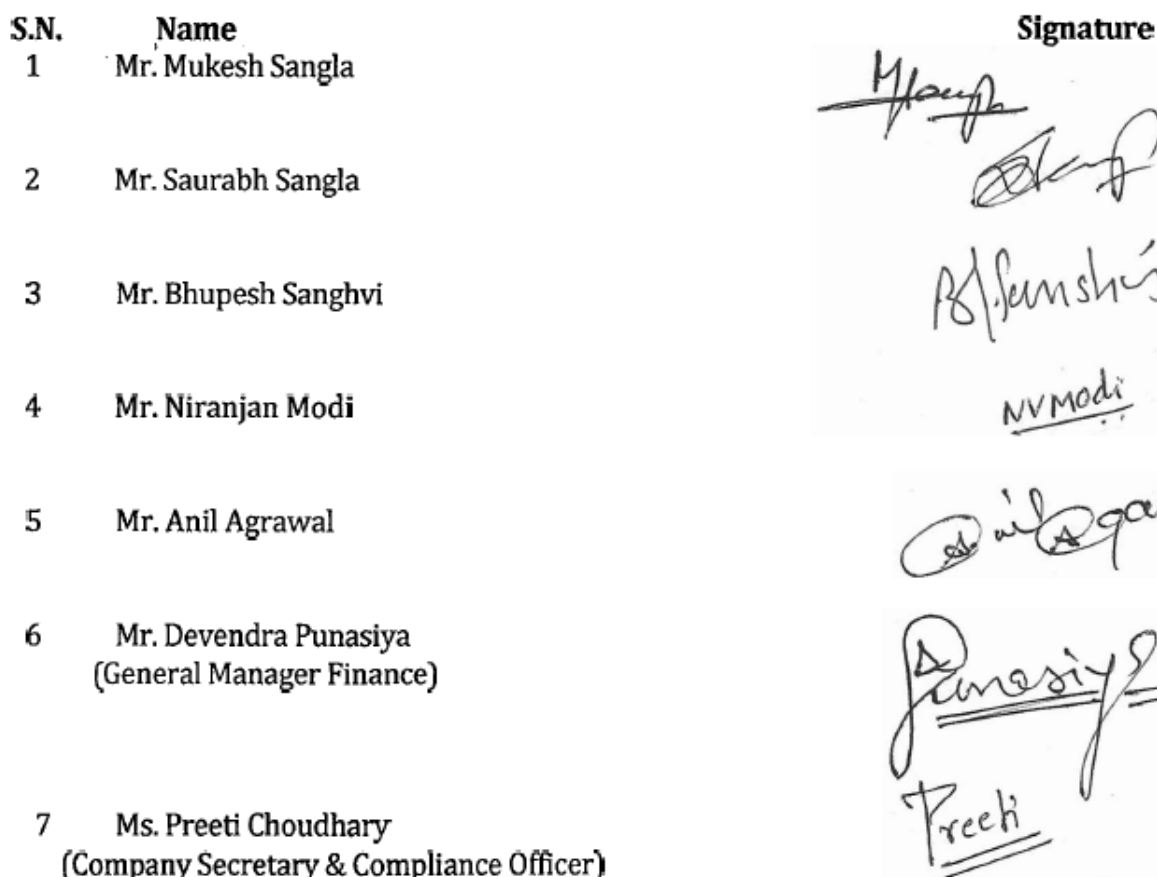 S.N. Name Signature
1 Mr. Mukesh Sangla
2 Mr. Saurabh Sangla
3 Mr. Bhupesh Sanghvi
4 Mr. Niranjan Modi NVModi
5 Mr. Anil Agrawal
6 Mr. Devendra Punasiya Punasiya
(General Manager Finance)
7 Ms. Preeti Choudhary Preeti
(Company Secretary & Compliance Officer)